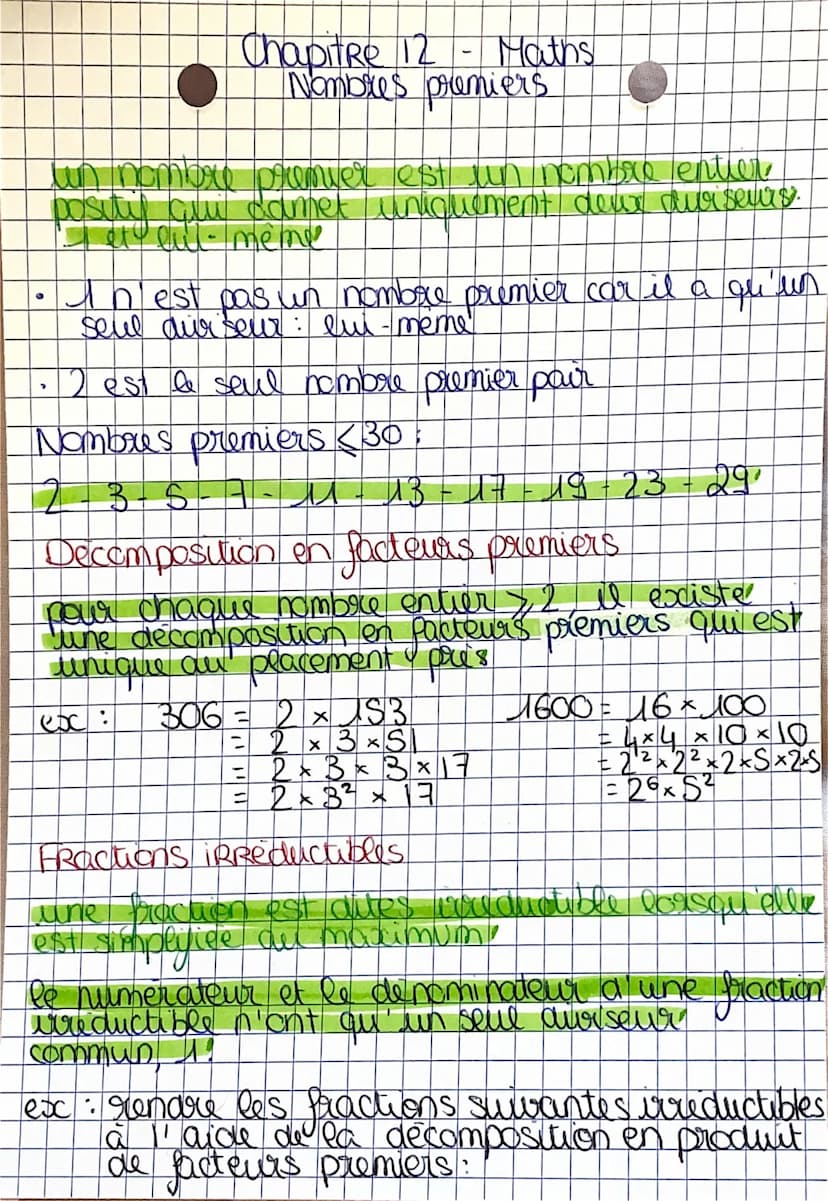 Chapitre 12 - Maths
Nombres premiers
un nombre premier est un nombre entier
positif qui admet uniquement deux diviseurs.
1 et lui-même
• 1 n'est pas un nombre premier car il a qu'un
seul diviseur : lui-même
• 2 est le seul nombre premier pair
Nombres premiers ⩽ 30 :
2 - 3 - 5 - 7 - 11 - 13 - 17 - 19 - 23 - 29
Décomposition en facteurs premiers
pour chaque nombre entier ⩾ 2 il existe
une décomposition en facteurs premiers qui est
unique au placement près
ex : 306 = 2 × 153
= 2 × 3 × 51
= 2 × 3 × 3 × 17
= 2 × 3² × 17
1600 = 16 × 100
= 4×4 × 10 × 10
= 2² × 2² × 2 × 5 × 2×5
= 2⁶ × 5²
Fractions irréductibles
une fraction est dites irréductible lorsqu'elle
est simplifiée au maximum
le numérateur et le dénominateur d'une fraction
irréductible n'ont qu'un seul diviseur
commun, 1!
ex : rendre les fractions suivantes irréductibles
à l'aide de la décomposition en produit
de facteurs premiers :